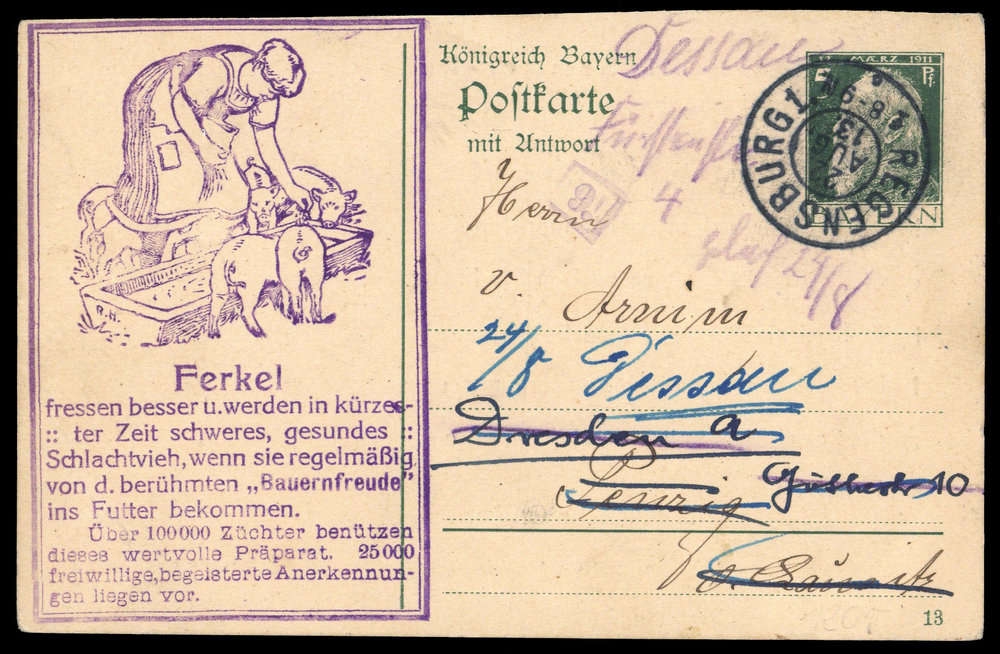 R.H.
Ferkel
fressen besser u. werden in kürzes-
:: ter Zeit schweres, gesundes ::
Schlachtvieh, wenn sie regelmäßig
von d. berühmten „Bauernfreude"
ins Futter bekommen.
Über 100000 Züchter benützen
dieses wertvolle Präparat. 25000
freiwillige, begeisterte Anerkennun-
gen liegen vor.
Königreich Bayern
Postkarte
mit Antwort
Dessau
4
24/8
5 MÆRZ 1911 Pf.
BAYERN
REGENSBURG 1
AUG.
13
8-9 N
Herrn
v. Arnim
24/8 Dessau
Dresden A
Penzig
13